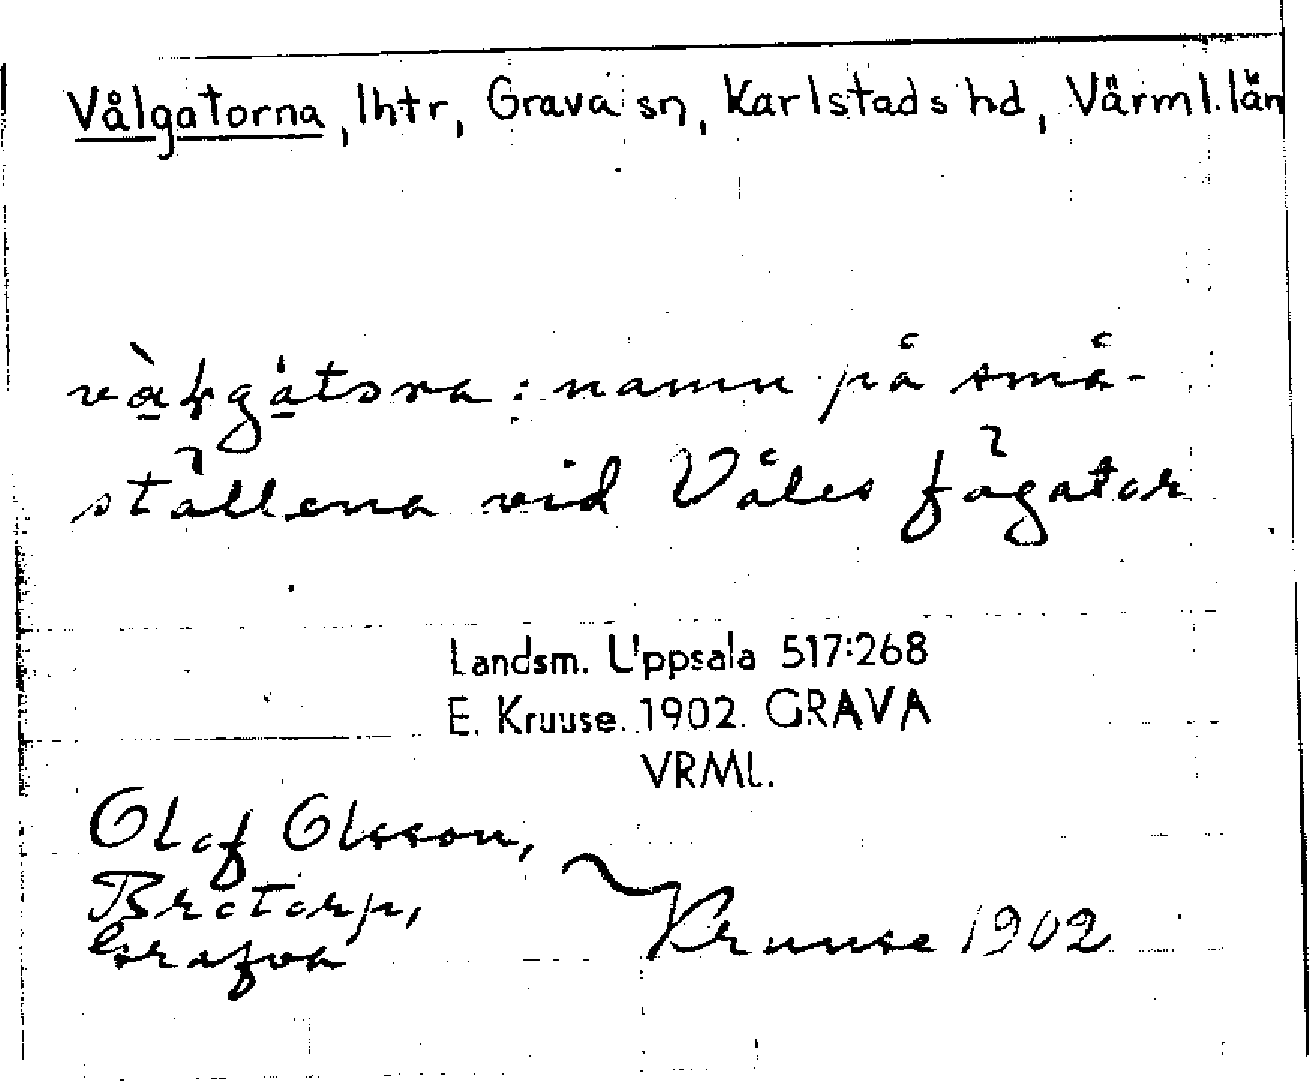 Vålgatorna, lhtr, Grava sn, Karlstads hd, Värml. län
namn på små-
ställena vid Våles fägator
Landsm. Uppsala 517:268
E. Kruuse. 1902. GRAVA
VRML.
Olof Olsson,
Brotorp,
Grafva
Kruuse 1902